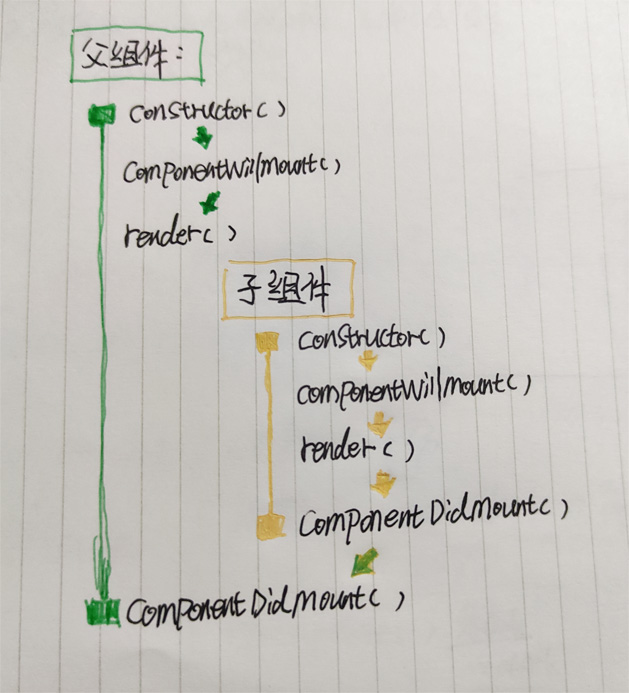 父组件：
constructor()
componentWillmount()
render()
子组件
constructor()
componentWillmount()
render()
componentDidmount()
componentDidmount()